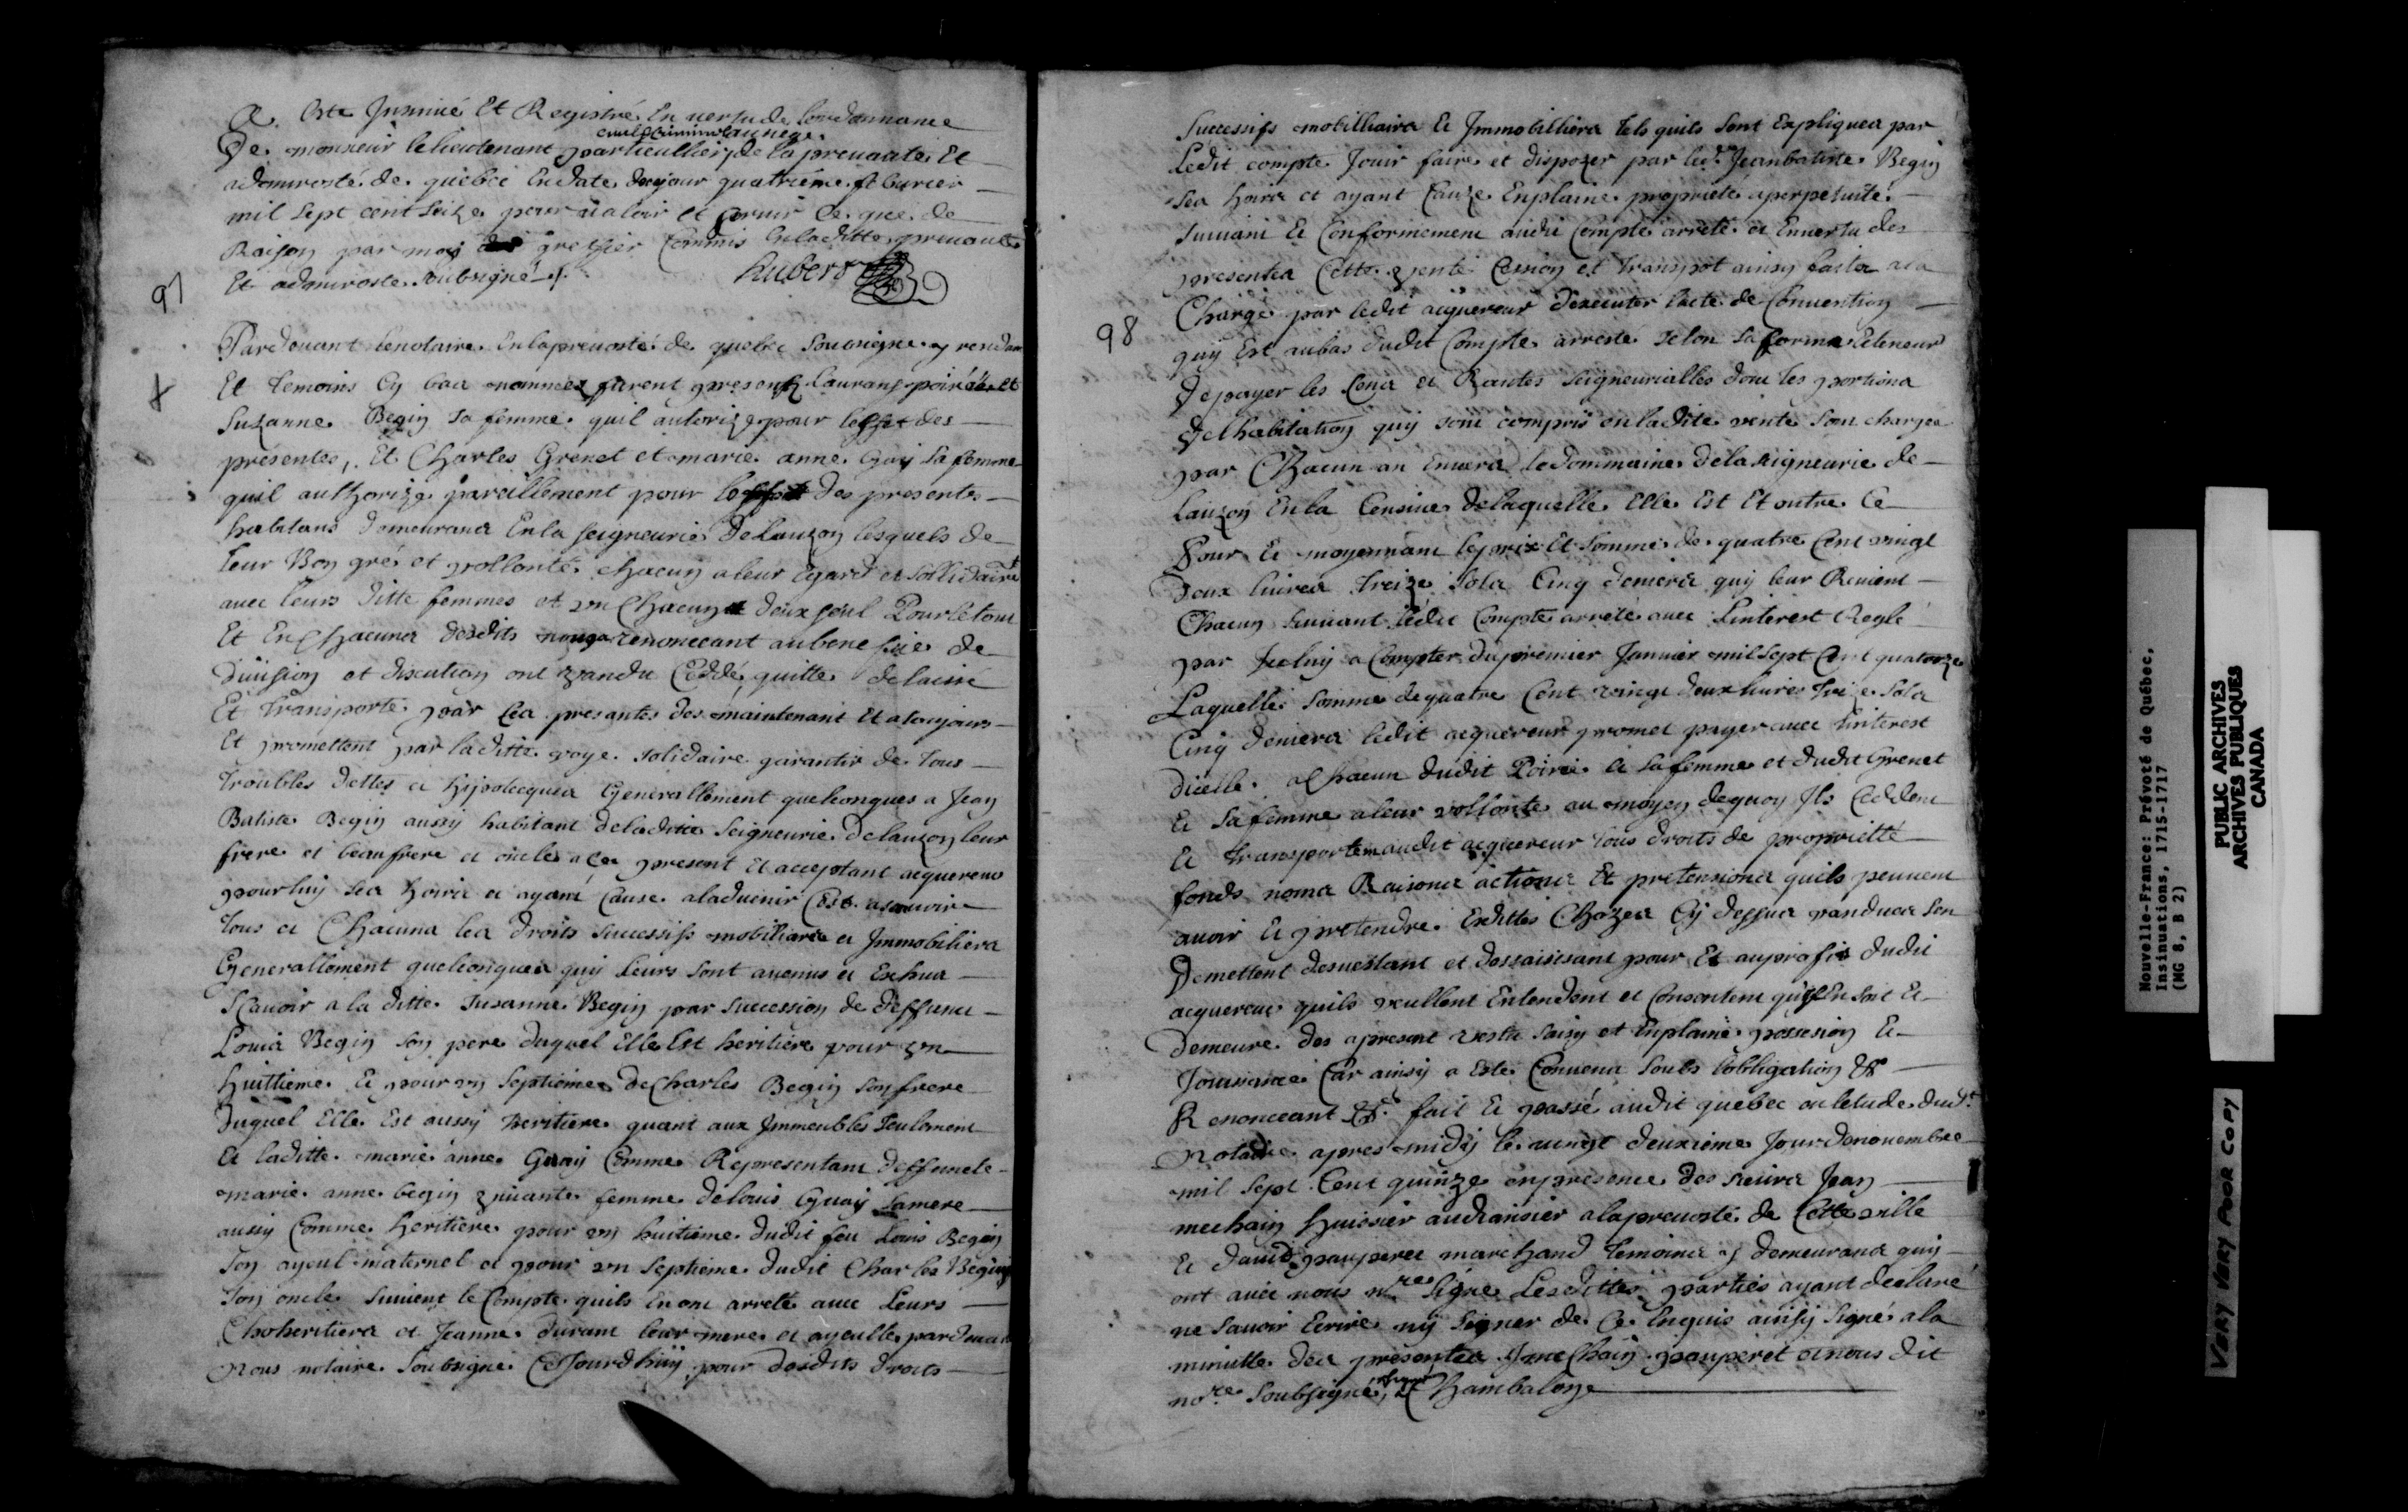 A Este Insinué Et Registré En vertu de lordonnance
civil & Criminel au siege
De monsieur le lieutenant particullier de la prevauté Et
admirosté de quebec En date du jour quatriéme febvrier
mil sept cent seize pour valoir et servir Ce que de
Raison par moy greffier Commis En la ditte prevauté
Et admirosté soubsigné
hubert
97
Pardevant le notaire En la prevosté de quebec sousigné y rendant
Et temoins Cy bas nommez furent presens Laurans poiré et
Suzanne Begin sa femme quil autorize pour leffet des
presentes, Et Charles Grenet et marie anne Guay sa femme
quil authorize pareillement pour leffet des presentes
habitans demeurans En la seigneurie De Lauzon lesquels de
leur Bon gré et vollonté chacun a leur Egard et sollidairt
avec leurs ditte femmes et un Chacun deux seul Pour le tout
Et En Chacuns desdits noms renonceant au benefice de
division et discution ont vandu Ceddé, quitté delaissé
Et Transporté par Ces presantes des maintenant Et a toujours
Et promettent par laditte voye solidaire garantir de tous
troubles dettes et hipotecques Generallement quelconques a Jean
Batiste Begin aussy habitant de laditte Seigneurie de lauzon leur
frere et beaufrere et oncle a Ce present Et acceptant acquereur
pour luy ses hoirs et ayant Cause a ladvenir Cest asavoir
tous et Chacuns les droits successifs mobiliaires et Jmmobiliers
Generallement quelconques quy leurs sont avenus et Echus
Scavoir a la ditte Susanne Begin par succession de deffunct
Louis Begin son pere duquel Elle Est heritiere pour un
huittieme Et pour un septieme de Charles Begin son frere
duquel Elle Est aussy heritiere quant aux Jmmeubles seulement
Et laditte marie anne Guay Comme Representant deffuncte
marie anne begin vivante femme de louis Guay sa mere
aussy Comme heritiere pour un huitieme dudit feu Louis Begin
son ayeul maternel et pour un septieme dudit Charles Begin
son oncle suivent le Compte quils En ont arretté avec Leurs
Choheritiers et Jeanne durant leur mere et ayeulle pardevant
Nous notaire Soubsigné Cejourdhuy pour desdits droits
98
Successifs mobilliaires Et Jmmobilliers tels quils sont Expliquez par
Ledit compte Jouir faire et disposer par led. Jean batiste Begin
ses hoirs et ayant Cauze En plaine propriété a perpetuité
suivant Et Conformement audit Compte arrêté et En vertu des
presentes Cette vente Cession et transpot ainsy faite a la
Charge par ledit acquereur d'executer l'acte de Convention
quy Est au bas dudit Compte arresté selon sa forme Et teneur
De payer les Cens et Rantes seigneurialles dont les portions
De lhabitation quy sont compris en la dite vente sont chargez
par Chacun an Envers le dommaine de la seigneurie de
Lauzon En la Censive de laquelle Elle Est Et outre Ce
Pour Et moyennant le prix Et somme de quatre Cent vingt
deux livres treize Sols Cinq deniers quy leur Revient
Chacun suivant ledit Compte arrêté avec Linterest Reglé
par Jceluy a Compter du premier Janvier mil sept Cent quatorze
Laquelle somme de quatre Cent vingt deux livres treize sols
Cinq deniers ledit acquereur promet payer avec linterest
dicelle a Chacun dudit Poiré Et sa femme et dudit Grenet
Et sa femme a leur vollonté au moyen dequoy Jls Ceddent
Et transportent audit acquereur tous droits de propriétté
fonds noms Raisons actions Et pretensions quils peuvent
avoir Et pretendre Esdittes Chozes Cy dessus vandues sen
Demettent desvestant et dessaisissant pour Et au profit dudit
acquereur quils veullent Entendent et Consentent quil En soit Et
demeure des apresent vestu saisy et En plaine possesion Et
Jouissance Car ainsy a Esté Convenu soubs lobligation &a
Renonceant &a fait Et passé audit quebec en letude dudt
Notaire apres midy le vingt deuxieme Jour de novembre
mil Sept Cent quinze en presence des sieurs Jean
mechain huissier audiansier a la prevosté de Cette ville
Et david pauperet marchand temoins y demeurans quy
ont avec nous nre signé Lesdittes parties ayant declaré
ne savoir Ecrire ny signer de Ce Enquis ainsy signé a la
minutte des presentes J mechain pauperet et nous dit
nore Soubsigné, signé Chambalon
Nouvelle-France: Prévoté de Québec,
Insinuations, 1715-1717
(MG 8, B 2)
PUBLIC ARCHIVES
ARCHIVES PUBLIQUES
CANADA
VERY VERY POOR COPY